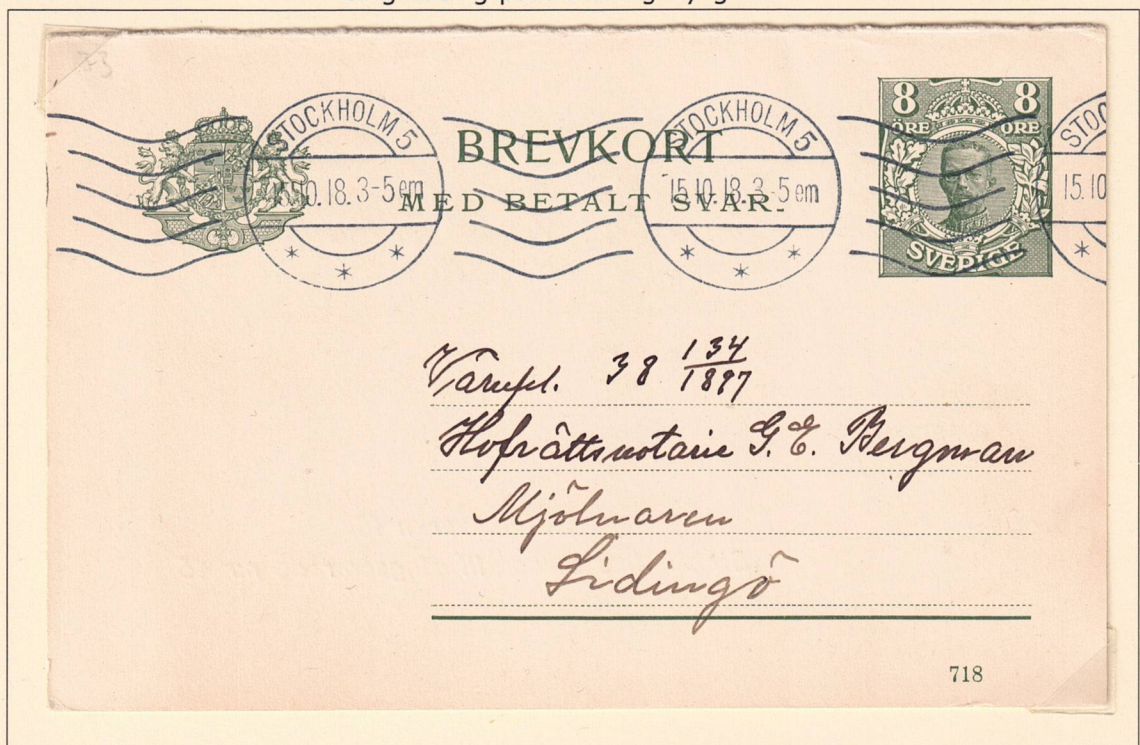 STOCKHOLM 5
15.10.18.3-5em
BREVKORT
MED BETALT SVAR.
STOCKHOLM 5
15.10.18.3-5em
8 8
ÖRE ÖRE
SVERIGE
STOC
15.10
Värnpl. 38 134/1897
Hofrättsnotarie G. E. Bergman
Mjölnaren
Lidingö
718